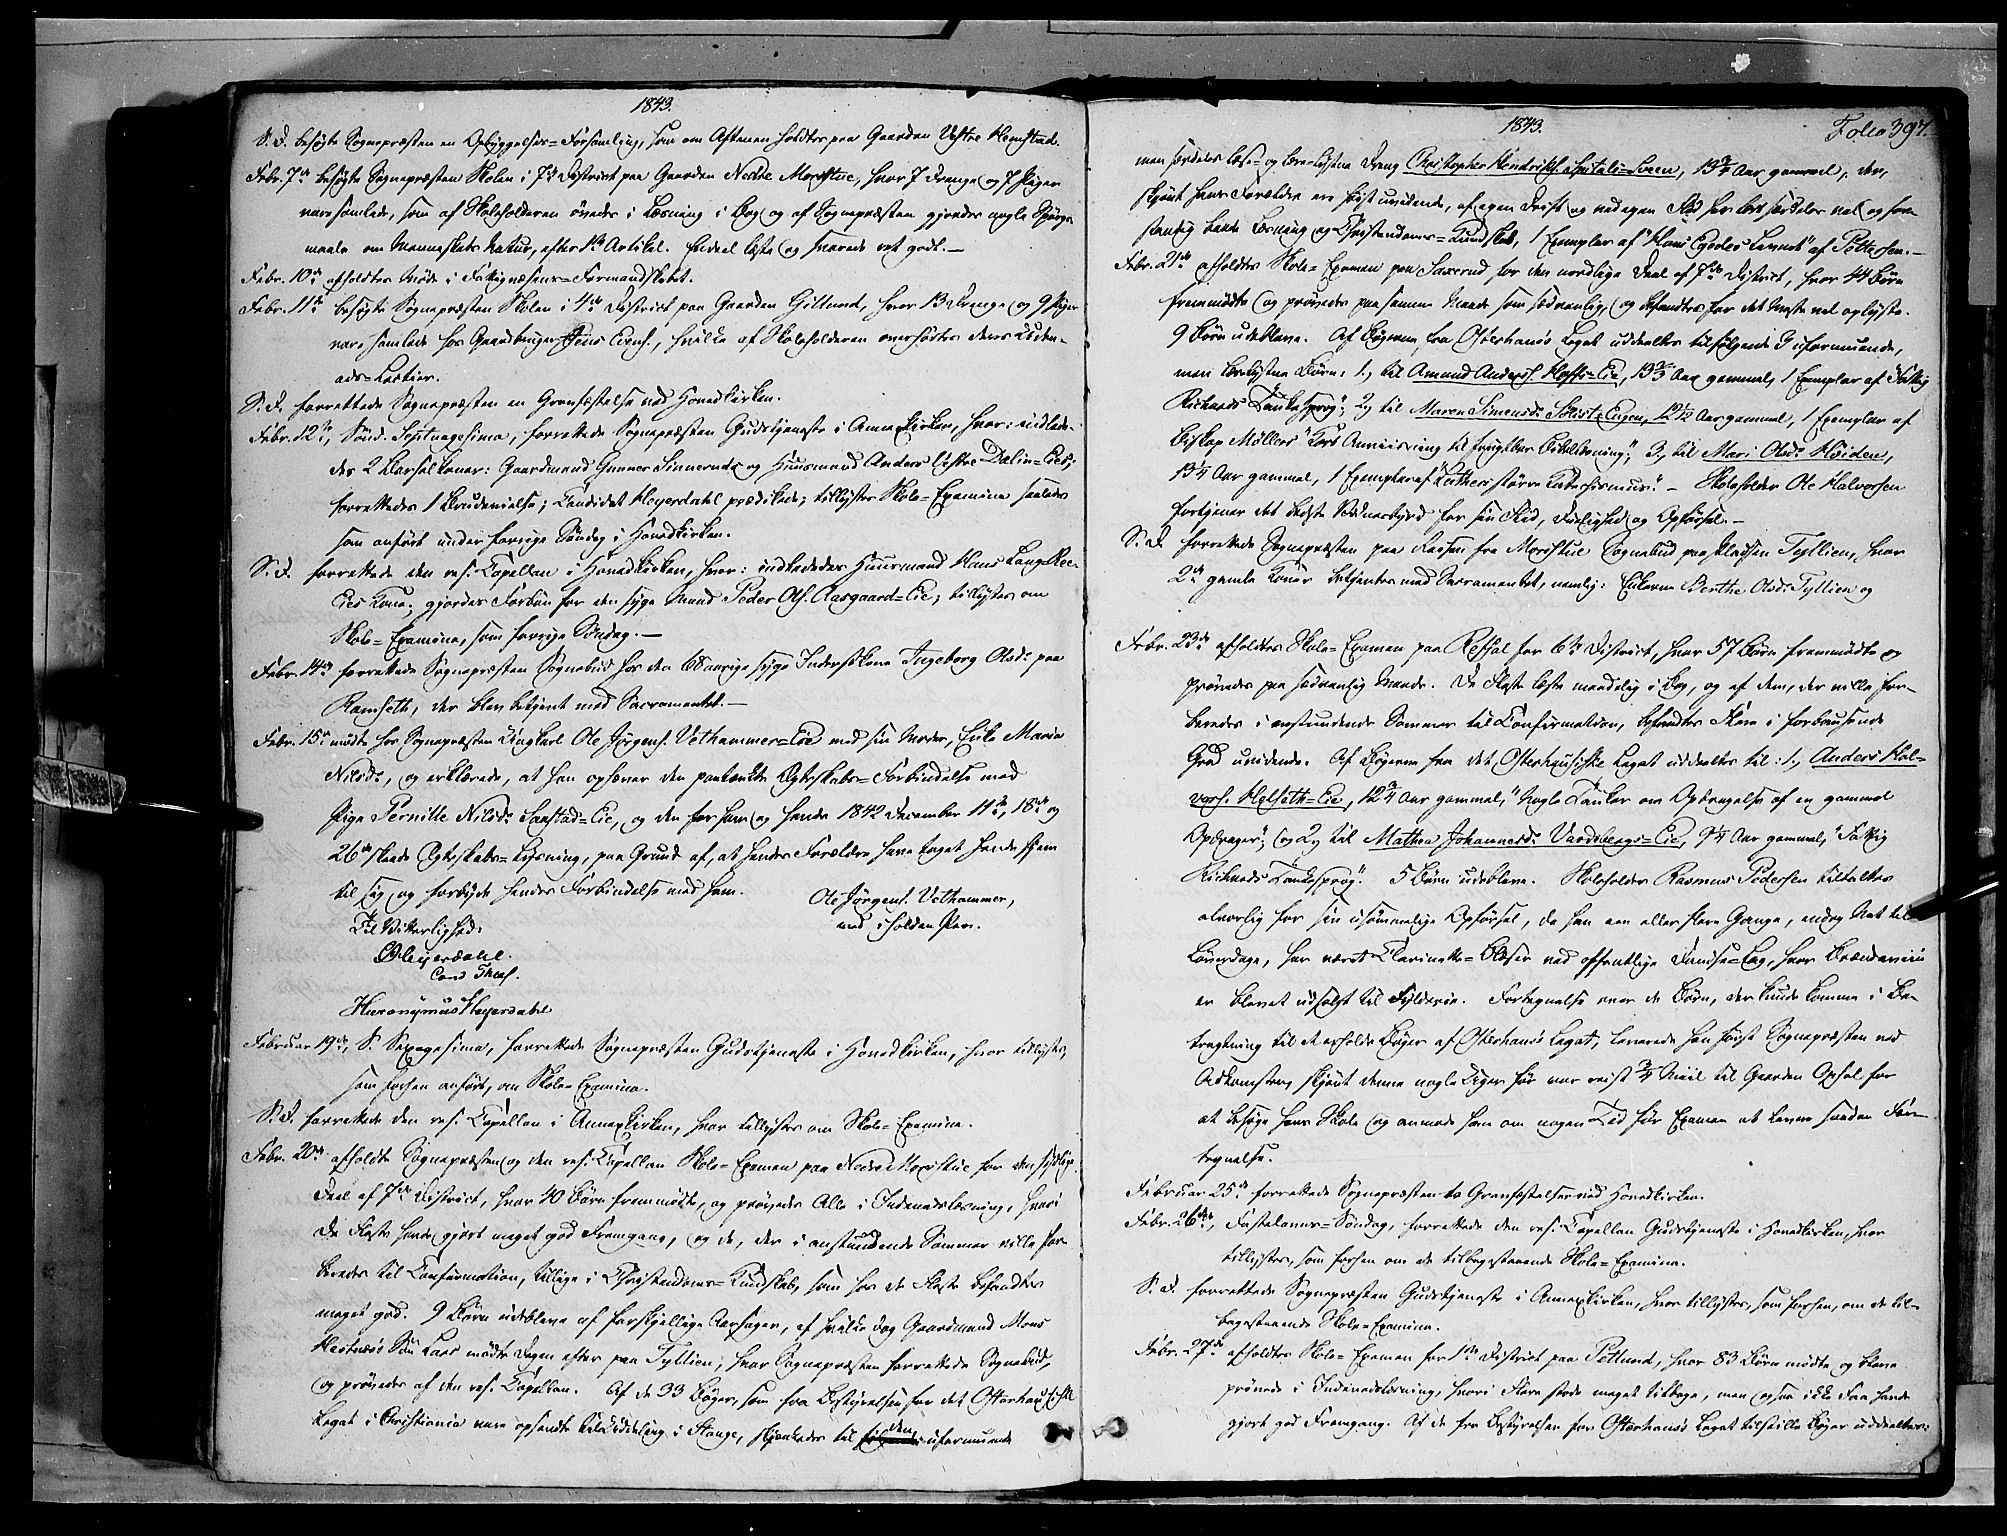 1843.
S. D. besøgte Sognepræsten en Opbyggelses-Forsamling, som om Aftenen holdtes paa Gaarden Vestre Klemstad.
Febr. 7de besøgte Sognepræsten Skolen i 7de District paa Gaarden Nedre Moystue, hvor 7 Drenge og 7 Piger
vare samlede, som af Skoleholderen øvedes i Læsning i Bog og af Sognepræsten gjordes nogle Spørgs-
maale om Menneskets Natur, efter 1ste Artikel. Endeel læste og svarede ret godt. —
Febr. 10de afholdtes Møde i Fattigvæsens-Formandskabet.
Febr. 11te besøgte Sognepræsten Skolen i 4de District paa Gaarden Gillund, hvor 13 Drenge og 9 Piger
vare samlede hos Gaardbruger Jens Eriks., hvilke af Skoleholderen overhørtes deres Uden-
ads-Lectier.
S. D. forrettede Sognepræsten en Gravfæstelse ved Hovedkirken.
Febr. 12te, Sønd. Septuagesima, forrettede Sognepræsten Gudstjeneste i Annexkirken, hvor: indlede-
des 2 Barselkoner: Gaardmand Gunner Sinnerud og Huusmand Anders Østre Dalin-Eies;
forrettedes 1 Brudevielse; Candidat Heyerdahl prædikede; tillystes Skole-Examina saaledes
som anført under forrige Søndag i Hovedkirken.
S. D. forrettede den res. Capellan i Hovedkirken, hvor: indlededes Huusmand Hans Lang-
Eies Kone; gjordes Forbøn for den syge Mand Peder Ols. Aasgaard-Eie; tillystes om
Skole-Examina, som forrige Søndag. —
Febr. 14de forrettede Sognepræsten Sognebud hos den 68aarige syge Inderstkone Ingeborg Olsd. paa
Ramseth, der blev betjent med Sacramentet. —
Febr. 15de mødte hos Sognepræsten Ungkarl Ole Jørgens. Vethammer-Eie med sin Moder, Enke Maria
Nilsd., og erklærede, at han ophæver den paatænkte Ægteskabs-Forbindelse med
Pige Pernille Nilsd. Saxstad-Eie, og den for ham og hende 1842 December 11te, 18de og
26de skeede Ægteskabs-Lysning, paa Grund af, at hendes Forældre have taget hende hjem
til sig og forbyde hendes Forbindelse med ham.
Ole Jørgens. Vethammer,
med iholden Pen.
Til Vitterlighed:
O Heyerdahl.
Cand. Theol.
Hieronymus Heyerdahl
Februar 19de, S. Sexagesima, forrettede Sognepræsten Gudstjeneste i Hovedkirken, hvor tillystes,
som forhen anført, om Skole-Examina.
S. D. forrettede den res. Capellan i Annexkirken, hvor tillystes om Skole-Examina.
Febr. 20de afholdte Sognepræsten og den res. Capellan Skole-Examen paa Nedre Moystue for den sydlige
Deel af 7de District, hvor 40 Børn fremmødte, og prøvedes Alle i Indenadslæsning, hvori
de Fleste havde gjort meget god Fremgang, og de, der i anstundende Sommer ville for-
beredes til Confirmation, tillige i Christendoms-Kundskab, som hos de Fleste befandtes
meget god. 9 Børn udebleve af forskjellige Aarsager, af hvilke dog Gaardmand Mons
Hestnæs's Søn Lars mødte Dagen efter paa Tyllien, hvor Sognepræsten forrettede Sognebud,
og prøvedes af den res. Capellan. Af de 33 Bøger, som fra Bestyrelsen for det Osterhausiske
Legat i Christiania vare opsendte til Uddeling i Stange, skjænkedes til den uformuende
1843.
Folio 397.
men særdeles læse- og lærelystne Dreng Christopher Hendriks. Spitals-Sveen, 13 3/4 Aar gammel, der,
skjønt hans Forældre ere høist uvidende, af egen Drift og ved egen Flid har lært særdeles vel og for-
standig baade Læsning og Christendoms-Kundskab, 1 Exemplar af "Hans Egedes Levnet" af Pettersen. —
Febr. 21de afholdtes Skole-Examen paa Saxerud for den nordlige Deel af 7de District, hvor 44 Børn
fremmødte og prøvedes paa samme Maade som sædvanlig, og befandtes for det Meste vel oplyste.
9 Børn udebleve. Af Bøgerne fra Osterhaus's Legat uddeeltes til følgende 3 uformuende,
men lærelystne Børn: 1, til Amund Anders. Hoffs-Eie, 13 2/3 Aar gammel, 1 Exemplar af "Fattig
Richards Tankesprog"; 2, til Maren Simensd. Solist-Engen, 12 1/2 Aar gammel, 1 Exemplar af
Biskop Møllers "Kort Anviisning til frugtbar Bibellæsning"; 3, til Mari Olsd. Høiden,
13 1/4 Aar gammel, 1 Exemplar af "Luthers større Katechismus". — Skoleholder Ole Halvorsen
fortjener det bedste Vidnesbyrd for sin Flid, Duelighed og Opførsel. —
S. D. forrettede Sognepræsten paa Reisen fra Moystue Sognebud paa Pladsen Tyllien, hvor
2de gamle Koner betjentes med Sacramentet, nemlig: Enkerne Berthe Olsd. Tyllien og
Febr. 23de afholdtes Skole-Examen paa Refsal for 6te District, hvor 57 Børn fremmødte og
prøvedes paa sædvanlig Maade. De Fleste læste maadelig i Bog, og af dem, der ville for-
beredes i anstundende Sommer til Confirmation, befandtes Flere i forbausende
Grad uvidende. Af Bøgerne fra det Osterhausiske Legat uddeeltes til: 1, Anders Hal-
vors. Helseth-Eie, 12 3/4 Aar gammel, "Nogle Tanker om Opdragelse af en gammel
Opdrager"; og 2, til Mathea Johannesd. Vaardsbergs-Eie, 9 1/4 Aar gammel, "Fattig
Richards Tankesprog". 5 Børn udebleve. Skoleholder Rasmus Pedersen tiltaltes
alvorlig for sin usømmelige Opførsel, da han een eller flere Gange, endog Nat til
Løverdage, har været Clarinette-Blæser ved offentlige Dandse-Lag, hvor Brændeviin
er blevet udsolgt til Fylderie. Fortegnelse over de Børn, der kunde komme i Be-
tragtning til at erholde Bøger af Osterhaus's Legat, leverede han først Sognepræsten ved
Ankomsten, skjønt denne nogle Uger før var reist 3/4 Miil til Gaarden Opsal for
at besøge hans Skole og anmode ham om nogen Tid før Examen at levere saadan For-
tegnelse.
Februar 25de forrettede Sognepræsten to Gravfæstelser ved Hovedkirken.
Febr. 26de, Fastelavns-Søndag, forrettede den res. Capellan Gudstjeneste i Hovedkirken, hvor
tillystes, som forhen om de tilbagestaaende Skole-Examina.
S. D. forrettede Sognepræsten Gudstjeneste i Annexkirken, hvor tillystes, som forhen, om de til-
bagestaaende Skole-Examina.
Febr. 27de afholdtes Skole-Examen for 1ste District paa Petlund, hvor 83 Børn mødte og bleve
prøvede i Indenadslæsning, hvori Flere stode meget tilbage, men ogsaa ikke Faa havde
gjort god Fremgang. Af de fra Bestyrelsen for Osterhaus's Legat tilstillede Bøger uddeeltes: